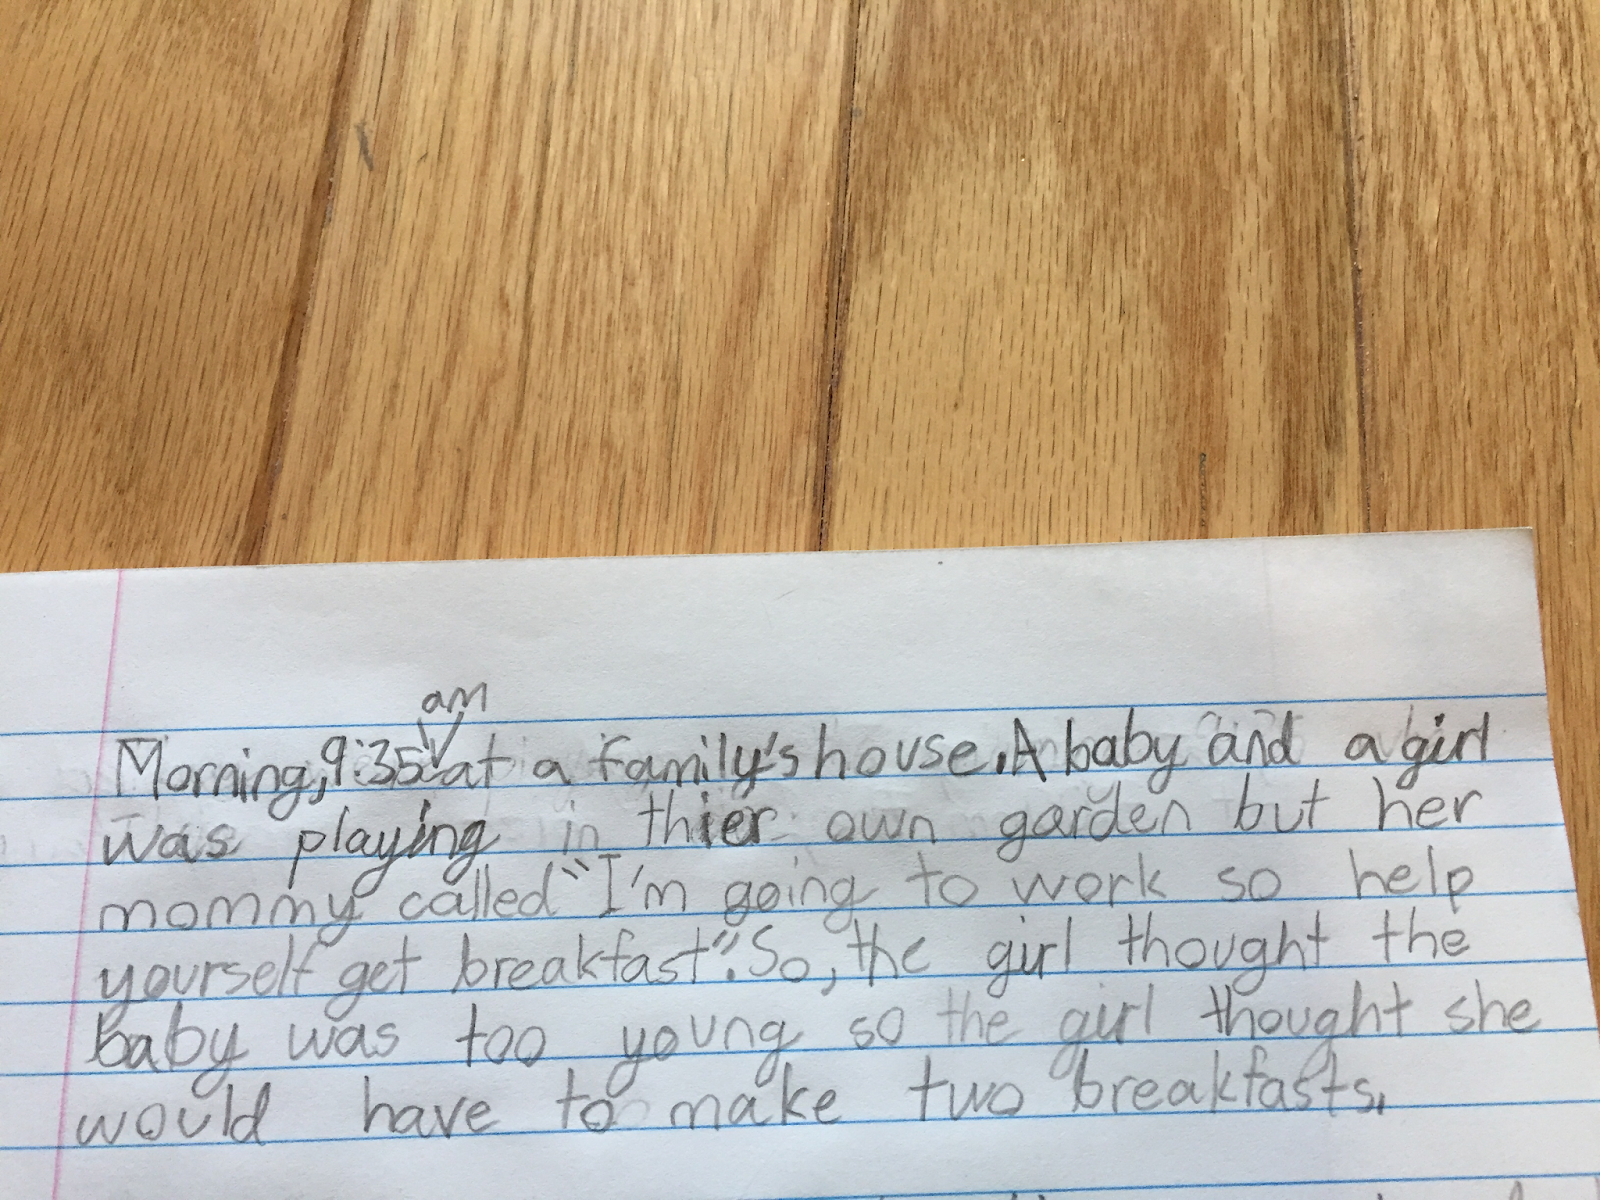 am
Morning, 9:35 at a family's house. A baby and a girl
was playing in thier own garden but her
mommy called "I'm going to work so help
yourself get breakfast". So, the girl thought the
baby was too young so the girl thought she
would have to make two breakfasts.